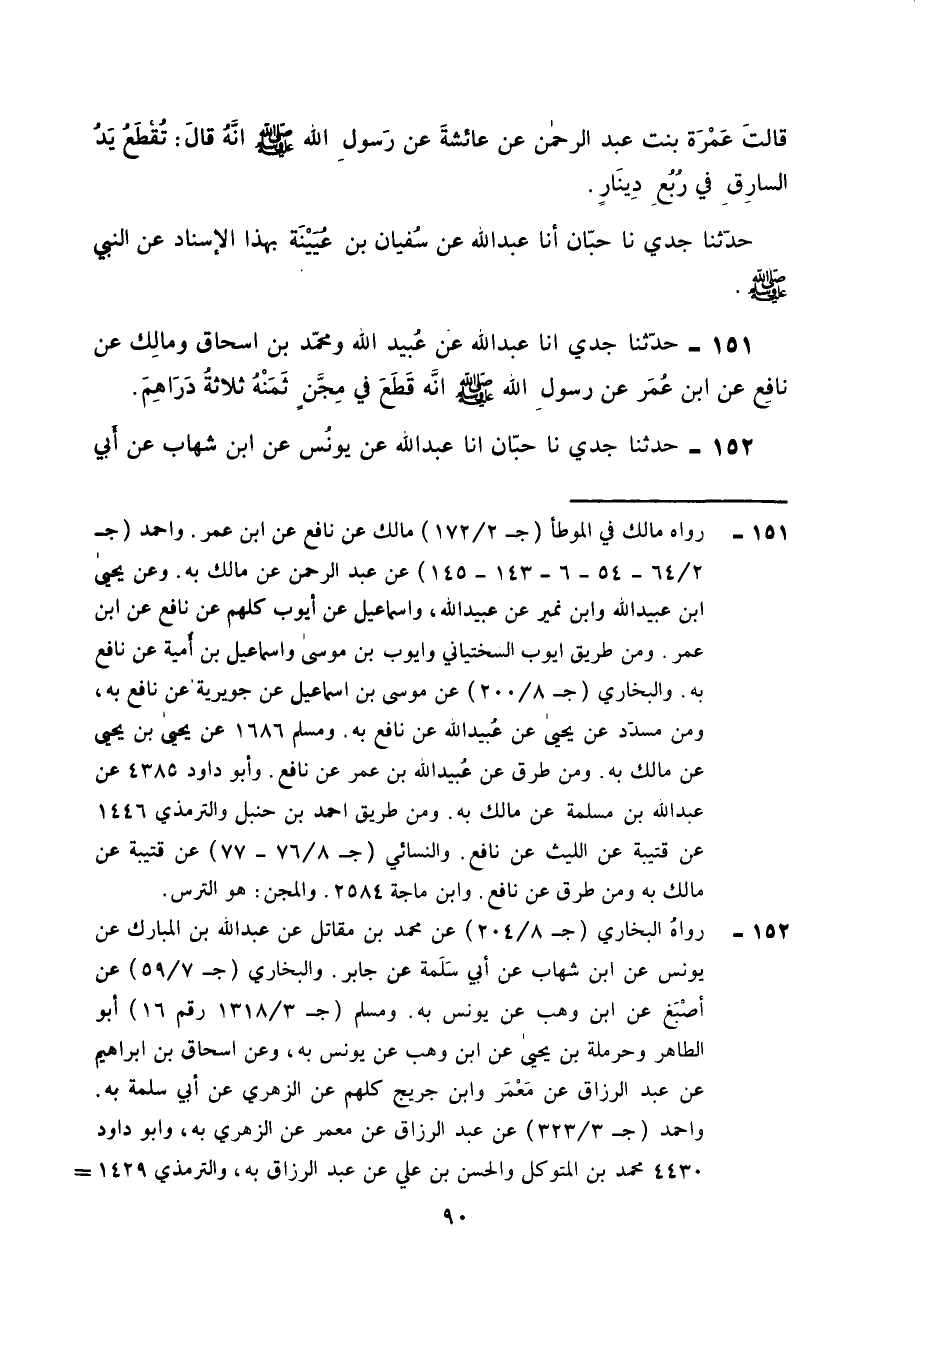 قالتَ عَمْرَة بنت عبد الرحمٰن عن عائشةَ عن رَسولِ الله ﷺ انَّهُ قالَ: تُقْطَعُ يَدُ
السارِقِ في رُبُعِ دِينَارٍ.
حدّثنا جدي نا حبّان أنا عبدالله عن سُفيان بن عُيَيْنَة بهذا الإسناد عن النبي
ﷺ.
١٥١ ـ حدّثنا جدي انا عبدالله عن عُبيد الله ومحمّد بن اسحاق ومالِك عن
نافِع عن ابن عُمَر عن رسولِ الله ﷺ انَّه قَطَعَ في مِجَّنٍ ثَمَنْهُ ثلاثةُ دَرَاهِمَ.
١٥٢ ـ حدثنا جدي نا حبّان انا عبدالله عن يونُس عن ابن شهاب عن أَبي
١٥١ ـ رواه مالك في الموطأ (جـ ١٧٢/٢) مالك عن نافع عن ابن عمر. واحمد (جـ
٦٤/٢ - ٥٤ - ٦ - ١٤٣ - ١٤٥) عن عبد الرحمن عن مالك به. وعن يحيىٰ
ابن عبيدالله وابن نمير عن عبيدالله، واسماعيل عن أيوب كلهم عن نافع عن ابن
عمر. ومن طريق ايوب السختياني وايوب بن موسىٰ واسماعيل بن أُمية عن نافع
به. والبخاري (جـ ٢٠٠/٨) عن موسى بن اسماعيل عن جويرية عن نافع به،
ومن مسدّد عن يحيىٰ عن عُبيدالله عن نافع به. ومسلم ١٦٨٦ عن يحيىٰ بن يحيى
عن مالك به. ومن طرق عن عُبيدالله بن عمر عن نافع. وأبو داود ٤٣٨٥ عن
عبدالله بن مسلمة عن مالك به. ومن طريق احمد بن حنبل والترمذي ١٤٤٦
عن قتيبة عن الليث عن نافع. والنسائي (جـ ٧٦/٨ - ٧٧) عن قتيبة عن
مالك به ومن طرق عن نافع. وابن ماجة ٢٥٨٤. والمجن: هو الترس.
١٥٢ ـ رواهُ البخاري (جـ ٢٠٤/٨) عن محمد بن مقاتل عن عبدالله بن المبارك عن
يونس عن ابن شهاب عن أبي سَلَمة عن جابر. والبخاري (جـ ٥٩/٧) عن
أصْبَغ عن ابن وهب عن يونس به. ومسلم (جـ ١٣١٨/٣ رقم ١٦) أبو
الطاهر وحرملة بن يحيىٰ عن ابن وهب عن يونس به، وعن اسحاق بن ابراهيم
عن عبد الرزاق عن مَعْمَر وابن جريج كلهم عن الزهري عن أبي سلمة به.
واحمد (جـ ٣٢٣/٣) عن عبد الرزاق عن معمر عن الزهري به، وابو داود
٤٤٣٠ محمد بن المتوكل والحسن بن علي عن عبد الرزاق به، والترمذي ١٤٢٩ =
٩٠